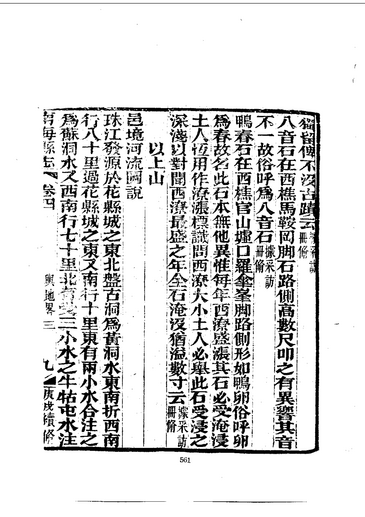 猶留傳不沒古蹟云據采訪冊脩
八音石在西樵馬鞍岡脚石路側高數尺叩之有異響其音
不一故俗呼爲八音石據采訪冊脩
鴨春石在西樵官山墟口羅傘峯脚路側形如鴨卵俗呼卵
爲春故名此石本無他異惟每年西潦盛漲其石必受淹浸
土人恆用作潦漲標識問西潦大小土人必舉此石受浸之
深淺以對聞西潦最盛之年全石淹沒猶溢數寸云據采訪冊脩
以上山
邑境河流圖說
珠江發源於花縣城之東北盤古洞爲黃洞水東南折西南
行八十里過花縣城之東又南行十里東有兩小水合注之
爲蘇洞水又西南行七十里北受三小水之牛牯屯水注
南海縣志 卷四 輿地畧三 九
561